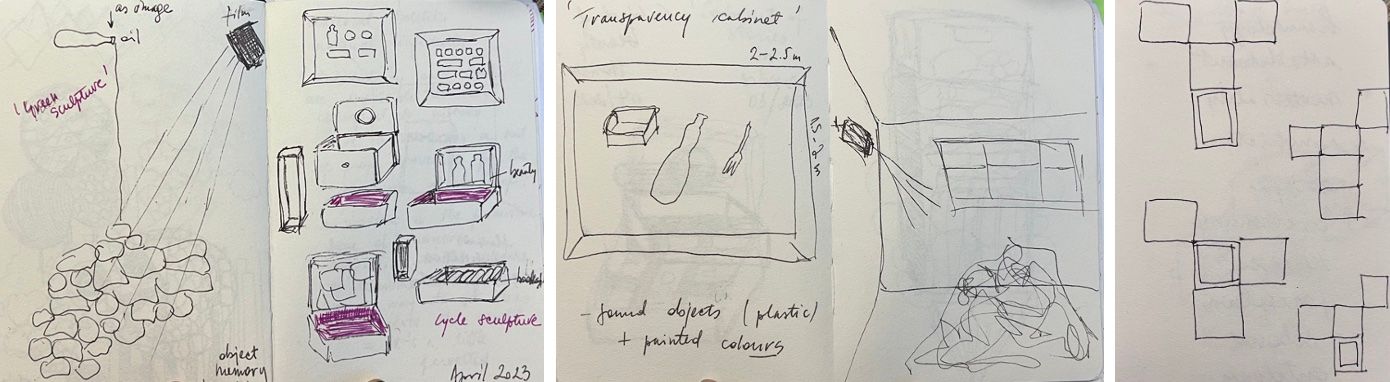 as image
oil
film
'Green
sculpture'
object
memory
beauty
books
Cycle sculpture
April 2023
'Transparency cabinet'
2-2.5m
1.5-2m
- found objects (plastic)
+ painted colours